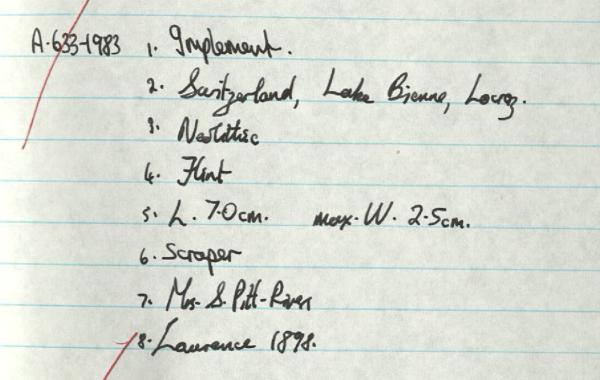 A·633-1983 1. Implement.
2. Switzerland, Lake Bienne, Locraz.
3. Neolithic
4. Flint
5. L. 7.0cm. max. W. 2.5cm.
6. Scraper
7. Mrs. S. Pitt-Rivers
8. Lawrence 1898.